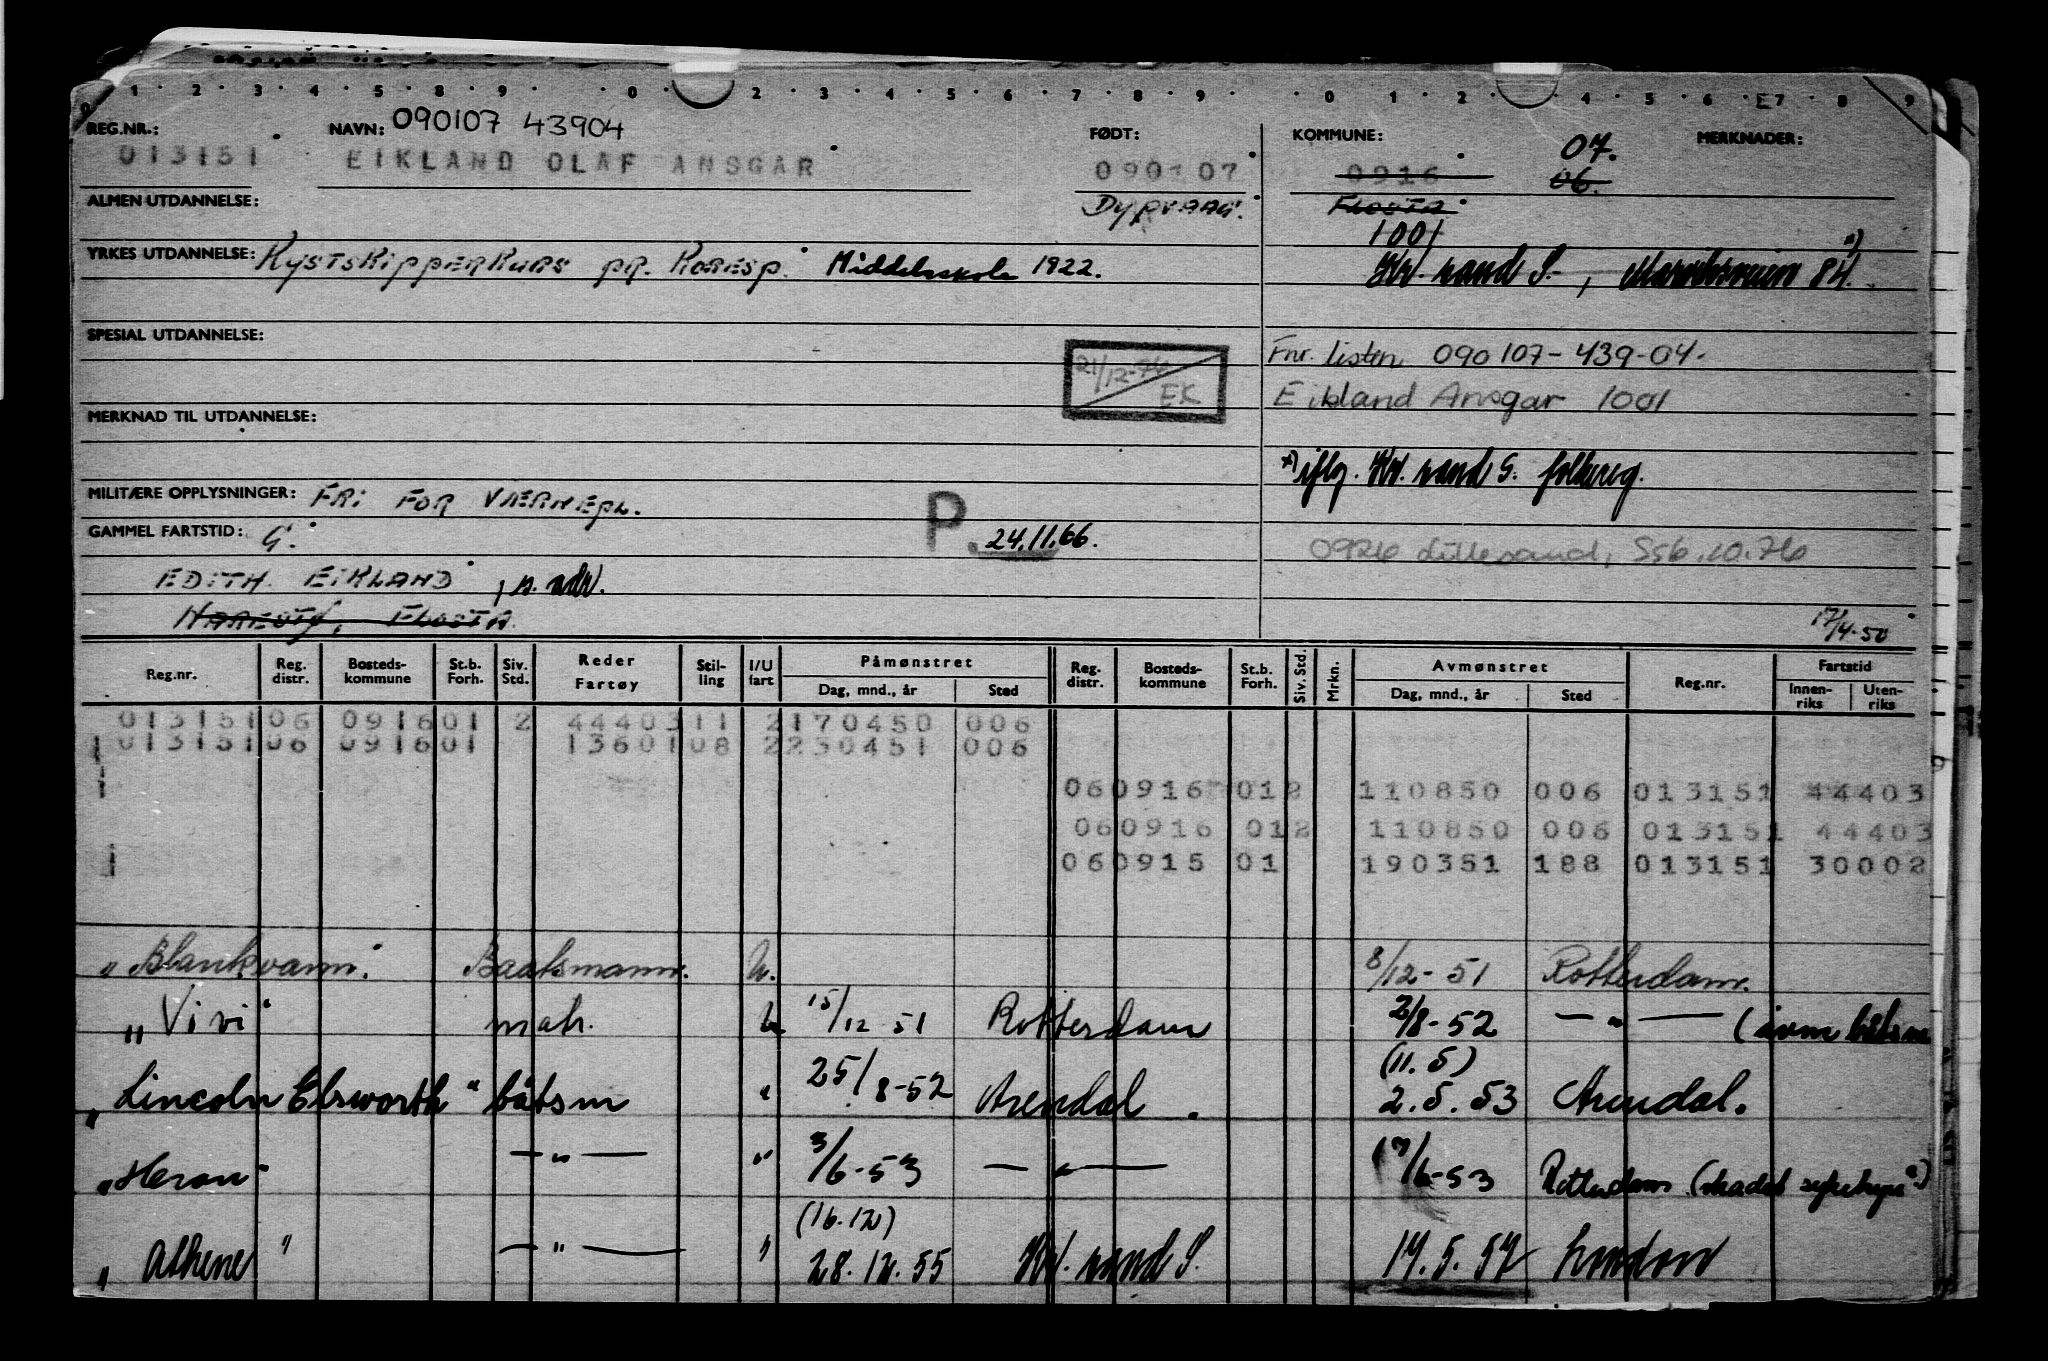 1 · 2 · 3 · 4 · 5 · 8 · 9 · · 0 · 2 · 3 · 4 · 5 · 6 · 7 · 8 · 9 · · 0 · 1 · 2 · 4 · 5 · 6 · E7 · 8 · 9
REG.NR.: NAVN: 090107 43904 FØDT: KOMMUNE: 07. MERKNADER:
013151 EIKLAND OLAF ANSGAR 090107 0916 06.
ALMEN UTDANNELSE: Dypvaag. Flosta
1001
YRKES UTDANNELSE: Kystskipperkurs pr. Koresp. Middelsskole 1922. Kr. sand S.,
SPESIAL UTDANNELSE: 21/12-76 EK Fnr. listen 090107-439-04.
Eikland Ansgar 1001
MERKNAD TIL UTDANNELSE:
x) iflg. Kr. sand S. folkereg.
MILITÆRE OPPLYSNINGER: Fri for værnepl.
GAMMEL FARTSTID: G. P. 24.11.66.
0926 Lillesand, SSB. 10.76
EDITH EIKLAND, s. adr.
Narestø, Flosta 17/4-50
Reg.nr. Reg. distr. Bosteds-kommune St.b. Forh. Siv. Std. Reder Fartøy Stil-ling I/U fart Påmønstret Dag, mnd., år Sted Reg. distr. Bosteds-kommune St.b. Forh. Siv. Std. Mrkn. Avmønstret Dag, mnd., år Sted Reg.nr. Fartstid Innen-riks Uten-riks
013151 06 0916 01 2 44403 11 2 170450 006
013151 06 0916 01 13601 08 2 230451 006
060916 01 2 110850 006 013151 44403
060916 01 2 110850 006 013151 44403
060915 01 190351 188 013151 30002
"Blankvann. Baatsmann. U. 8/12-51 Rotterdam.
"Vivi" matr. U 15/12 51 Rotterdam 2/8-52 —"— (avm båtsm
(11.5)
"Lincoln Elsworth" båtsm " 25/8-52 Arendal. 2.5.53 Arendal.
"Heron" —"— " 3/6-53 —"— 17/6-53 Rotterdam (skadet
(16.12)
"Athene" —"— " 28.12.55 Kr. sand S. 14.5.57 London